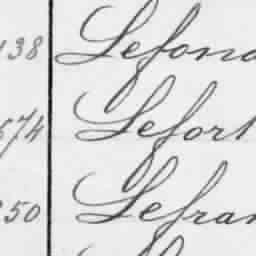 138 Lefona
574 Lefort
250 Lefran